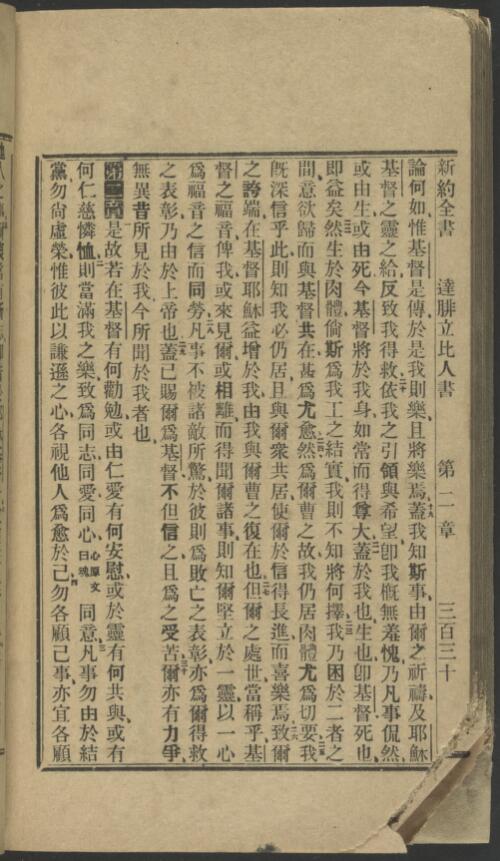 新約全書 達腓立比人書 第二章 三百三十
論何如惟基督是傳於是我則樂且將樂焉蓋我知斯事由爾之祈禱及耶穌
基督之靈之給反致我得救依我之引領與希望卽我概無羞愧乃凡事侃然
或由生或由死今基督將於我身如常而得尊大蓋於我也生也卽基督死也
卽益矣然生於肉體倘斯爲我工之結實我則不知將何擇我乃困於二者之
間意欲歸而與基督共在甚爲尤愈然爲爾曹之故我仍居肉體尤爲切要我
旣深信乎此則知我必仍居且與爾衆共居使爾於信得長進而喜樂焉致爾
之誇端在基督耶穌益增於我由我與爾曹之復在也但爾之處世當稱乎基
督之福音俾我或來見爾或相離而得聞爾諸事則知爾堅立於一靈以一心
爲福音之信而同勞凡事不被諸敵所驚於彼則爲敗亡之表彰亦爲爾得救
之表彰乃由於上帝也蓋已賜爾爲基督不但信之且爲之受苦爾亦有力爭
無異昔所見於我今所聞於我者也
第二章是故若在基督有何勸勉或由仁愛有何安慰或於靈有何共與或有
何仁慈憐恤則當滿我之樂致爲同志同愛同心心原文曰魂同意凡事勿由於結
黨勿尙虛榮惟彼此以謙遜之心各視他人爲愈於己勿各顧己事亦宜各顧